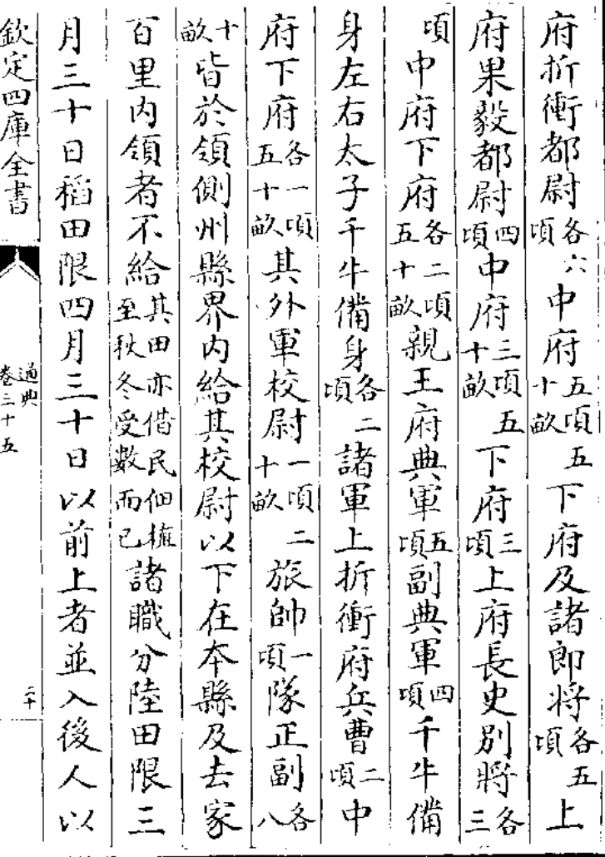 府折衝都尉各六頃中府五頃五十畝下府及諸郎將各五頃上
府果毅都尉四頃中府三頃五十畝下府三頃上府長史別將各三
頃中府下府各二頃五十畝親王府典軍五頃副典軍四頃千牛備
身左右太子千牛備身各二頃諸軍上折衝府兵曹二頃中
府下府各一頃五十畝其外軍校尉一頃二十畝旅帥一頃隊正副各八
十畝皆於領側州縣界內給其校尉以下在本縣及去家
百里內領者不給其田亦借民佃植至秋冬受數而已諸職分陸田限三
月三十日稻田限四月三十日以前上者並入後人以
欽定四庫全書
通典
卷三十五
二十